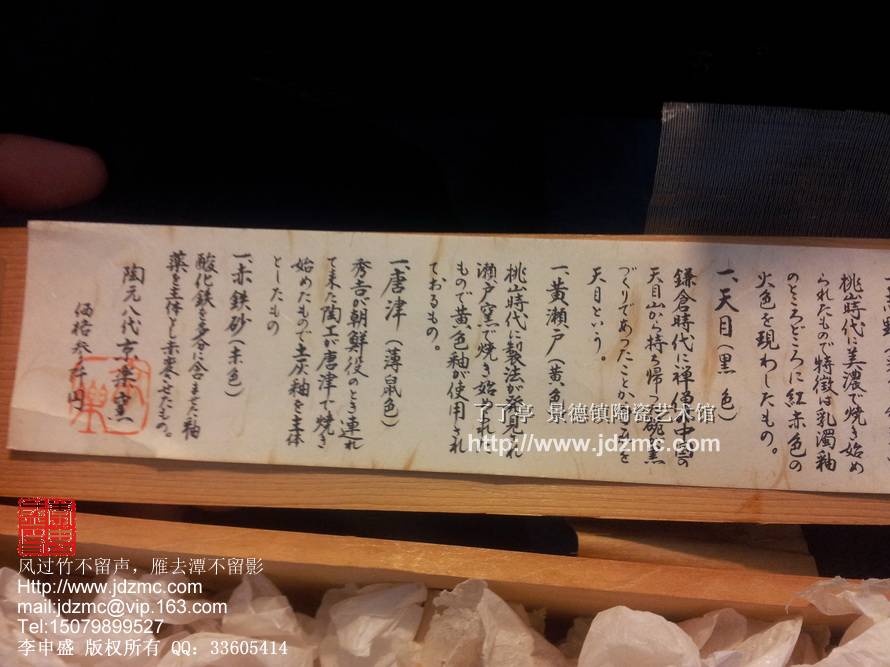 桃山時代に美濃で焼き始め
られたもので特徴は乳濁釉
のところどころに紅赤色の
火色を現わしたもの。
一、天目(黒 色)
鎌倉時代に禅僧が中国の
天目山から持ち帰った碗が黒
づくりであったことから を
天目という。
一、黄瀬戸(黄色)
桃山時代に製法が発見され
瀬戸窯で焼き始められた
もので黄色釉が使用され
ておるもの。
一、唐津(薄鼠色)
秀吉が朝鮮役のとき連れ
て来た陶工が唐津で焼き
始めたもので土灰釉を主体
としたもの
一、赤鉄砂(赤色)
酸化鉄を多分に含ませた釉
薬を主体とし赤発させたもの。
陶元八代京楽窯
価格参仟円
了了亭 景德镇陶瓷艺术馆
http://www.jdzmc.com
风过竹不留声，雁去潭不留影
Http://www.jdzmc.com
mail:jdzmc@vip.163.com
Tel:15079899527
李申盛 版权所有 QQ：33605414